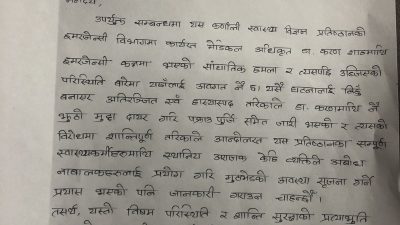 महोदय,
उपर्युक्त सम्बन्धमा यस कर्णाली स्वास्थ्य विज्ञान प्रतिष्ठानको
इमरजेन्सी विभागमा कार्यरत मेडिकल अधिकृत डा. करण शाहमाथि
इमरजेन्सी कक्षमा भएको सांघातिक हमला र त्यसपछि उब्जिएको
परिस्थिति बारेमा यहाँलाई अवगत नै छ। यसै घटनालाई
बनाएर अतिरञ्जित एवं हास्यास्पद तरिकाले डा. करणमाथि नै
झुठो मुद्दा दायर गरि पक्राउ पुर्जि समेत जारी भएको र त्यसको
विरोधमा शान्तिपूर्ण तरिकाले आन्दोलनरत यस प्रतिष्ठानका सम्पूर्ण
स्वास्थ्यकर्मीहरुमाथि स्थानिय अराजक केहि व्यक्तिले अबोध
नाबालकहरुलाई प्रयोग गरि मुठभेडको अवस्था सृजना गर्ने
प्रयास भएको पनि जानकारी गराउन चाहन्छौं।
तसर्थ, यस्तो विषम परिस्थिति र शान्ति सुरक्षाको प्रत्याभूति